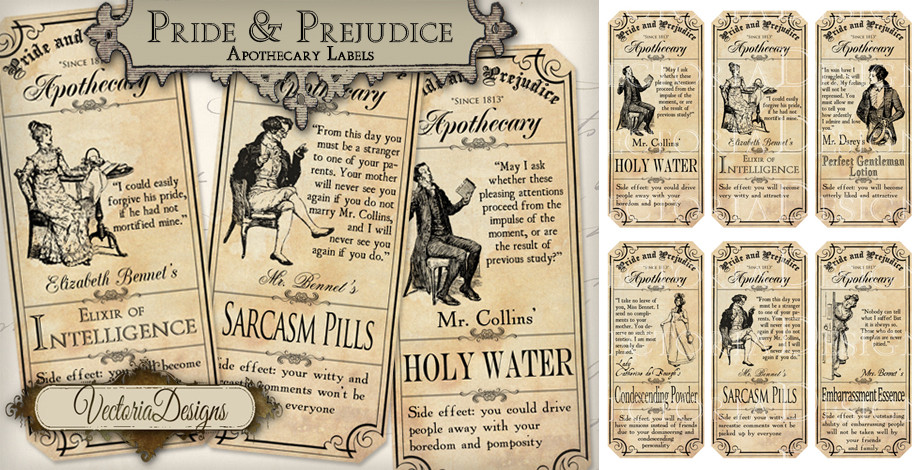 PRIDE & PREJUDICE
APOTHECARY LABELS
Pride and
"SINCE 18
Apothecary
"I could easily
forgive his pride,
if he had not
mortified mine."
Elizabeth Bennet's
ELIXIR OF
INTELLIGENCE
Side effect: you will become
"From this day you
must be a stranger
to one of your pa-
rents. Your mother
will never see you
again if you do not
marry Mr. Collins,
and I will
never see you
again if you do."
Mr. Bennet's
SARCASM PILLS
Side effect: your witty and
sarcastic comments won't be
everyone
Prejudice
"SINCE 1813"
Apothecary
"May I ask
whether these
pleasing attentions
proceed from the
impulse of the
moment, or are
the result of
previous study?"
Mr. Collins'
HOLY WATER
Side effect: you could drive
people away with your
boredom and pomposity
VectoriaDesigns
Pride and Prejudice
"SINCE 1813"
Apothecary
"May I ask
whether these
pleasing attentions
proceed from the
impulse of the
moment, or are
the result of
previous study?"
Mr. Collins'
HOLY WATER
Side effect: you could drive
people away with your
boredom and pomposity
Pride and Prejudice
"SINCE 1813"
Apothecary
"I could easily
forgive his pride,
if he had not
mortified mine."
Elizabeth Bennet's
ELIXIR OF
INTELLIGENCE
Side effect: you will become
very witty and attractive
Pride and Prejudice
"SINCE 1813"
Apothecary
"In vain have I
struggled. It will
not do. My feelings
will not be
repressed. You
must allow me
to tell you
how ardently
I admire and love
you."
Mr. Darcy's
Perfect Gentleman
Lotion
Side effect: you will become
utterly liked and attractive
Pride and Prejudice
Apothecary
"I take no leave
of you, Miss Bennet. I
send no compli-
ments to your
mother. You de-
serve no such at-
tention. I am most
seriously dis-
pleased."
Lady
Catherine de Bourgh's
Condescending Powder
Side effect: you will
have minions instead of friends
due to your domineering and
condescending
personality
Pride and Prejudice
"SINCE 1813"
Apothecary
"From this day you
must be a stranger
to one of your pa-
rents. Your mother
will never see you
again if you do not
marry Mr. Collins,
and I will
never see you
again if you do."
Mr. Bennet's
SARCASM PILLS
Side effect: your witty and
sarcastic comments won't be
picked up by everyone
Pride and Prejudice
Apothecary
"Nobody can tell
what I suffer! But
it is always so.
Those who do not
complain are never
pitied."
Mrs. Bennet's
Embarrassment Essence
Side effect: your outstanding
ability of embarrassing people
will not be taken by
your friends
and family